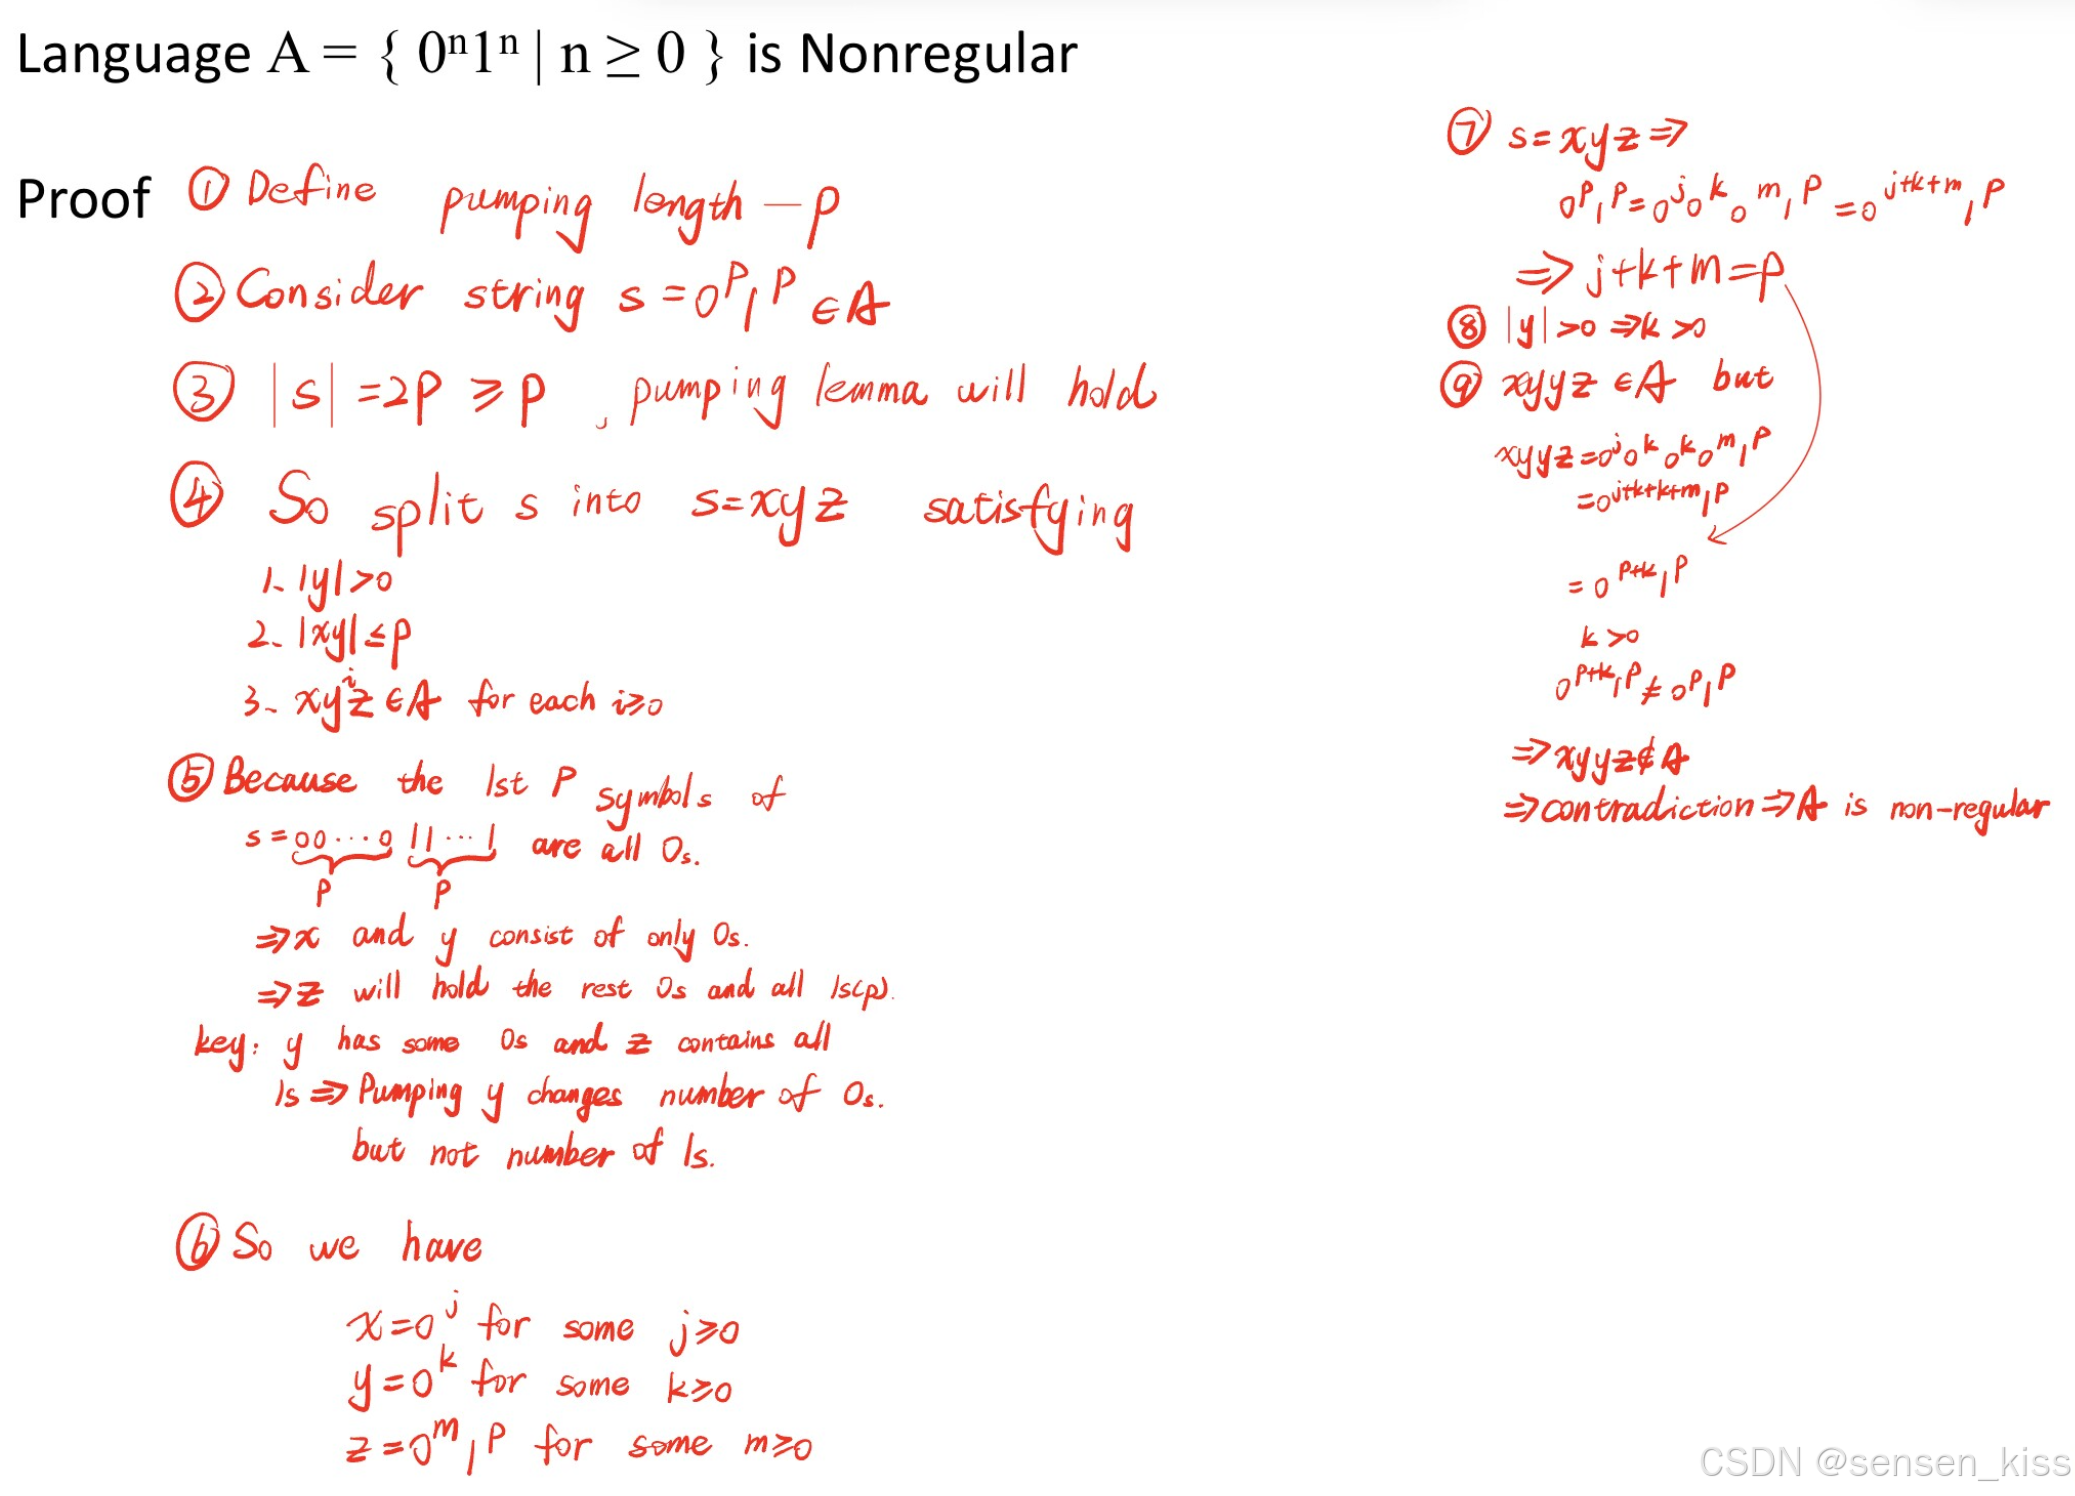 Language A = { 0ⁿ1ⁿ | n ≥ 0 } is Nonregular
Proof ① Define pumping length – p
② Consider string s = 0ᵖ1ᵖ ∈ A
③ |s| = 2p ⩾ p , pumping lemma will hold
④ So split s into s=xyz satisfying
1. |y|>0
2. |xy|≤p
3. xyⁱz ∈ A for each i⩾0
⑤ Because the 1st P symbols of
s = 00···0 11···1 are all 0s.
P P
⇒ x and y consist of only 0s.
⇒ z will hold the rest 0s and all 1s(p).
key: y has some 0s and z contains all
1s ⇒ Pumping y changes number of 0s.
but not number of 1s.
⑥ So we have
x=0ʲ for some j⩾0
y=0ᵏ for some k⩾0
z=0ᵐ1ᵖ for some m⩾0
⑦ s=xyz ⇒
0ᵖ1ᵖ=0ʲ0ᵏ0ᵐ1ᵖ=0ʲ⁺ᵏ⁺ᵐ1ᵖ
⇒ j+k+m=p
⑧ |y|>0 ⇒ k>0
⑨ xyyz ∈ A but
xyyz=0ʲ0ᵏ0ᵏ0ᵐ1ᵖ
=0ʲ⁺ᵏ⁺ᵏ⁺ᵐ1ᵖ
=0ᵖ⁺ᵏ1ᵖ
k>0
0ᵖ⁺ᵏ1ᵖ≠0ᵖ1ᵖ
⇒ xyyz∉A
⇒ contradiction ⇒ A is non-regular
CSDN @sensen_kiss